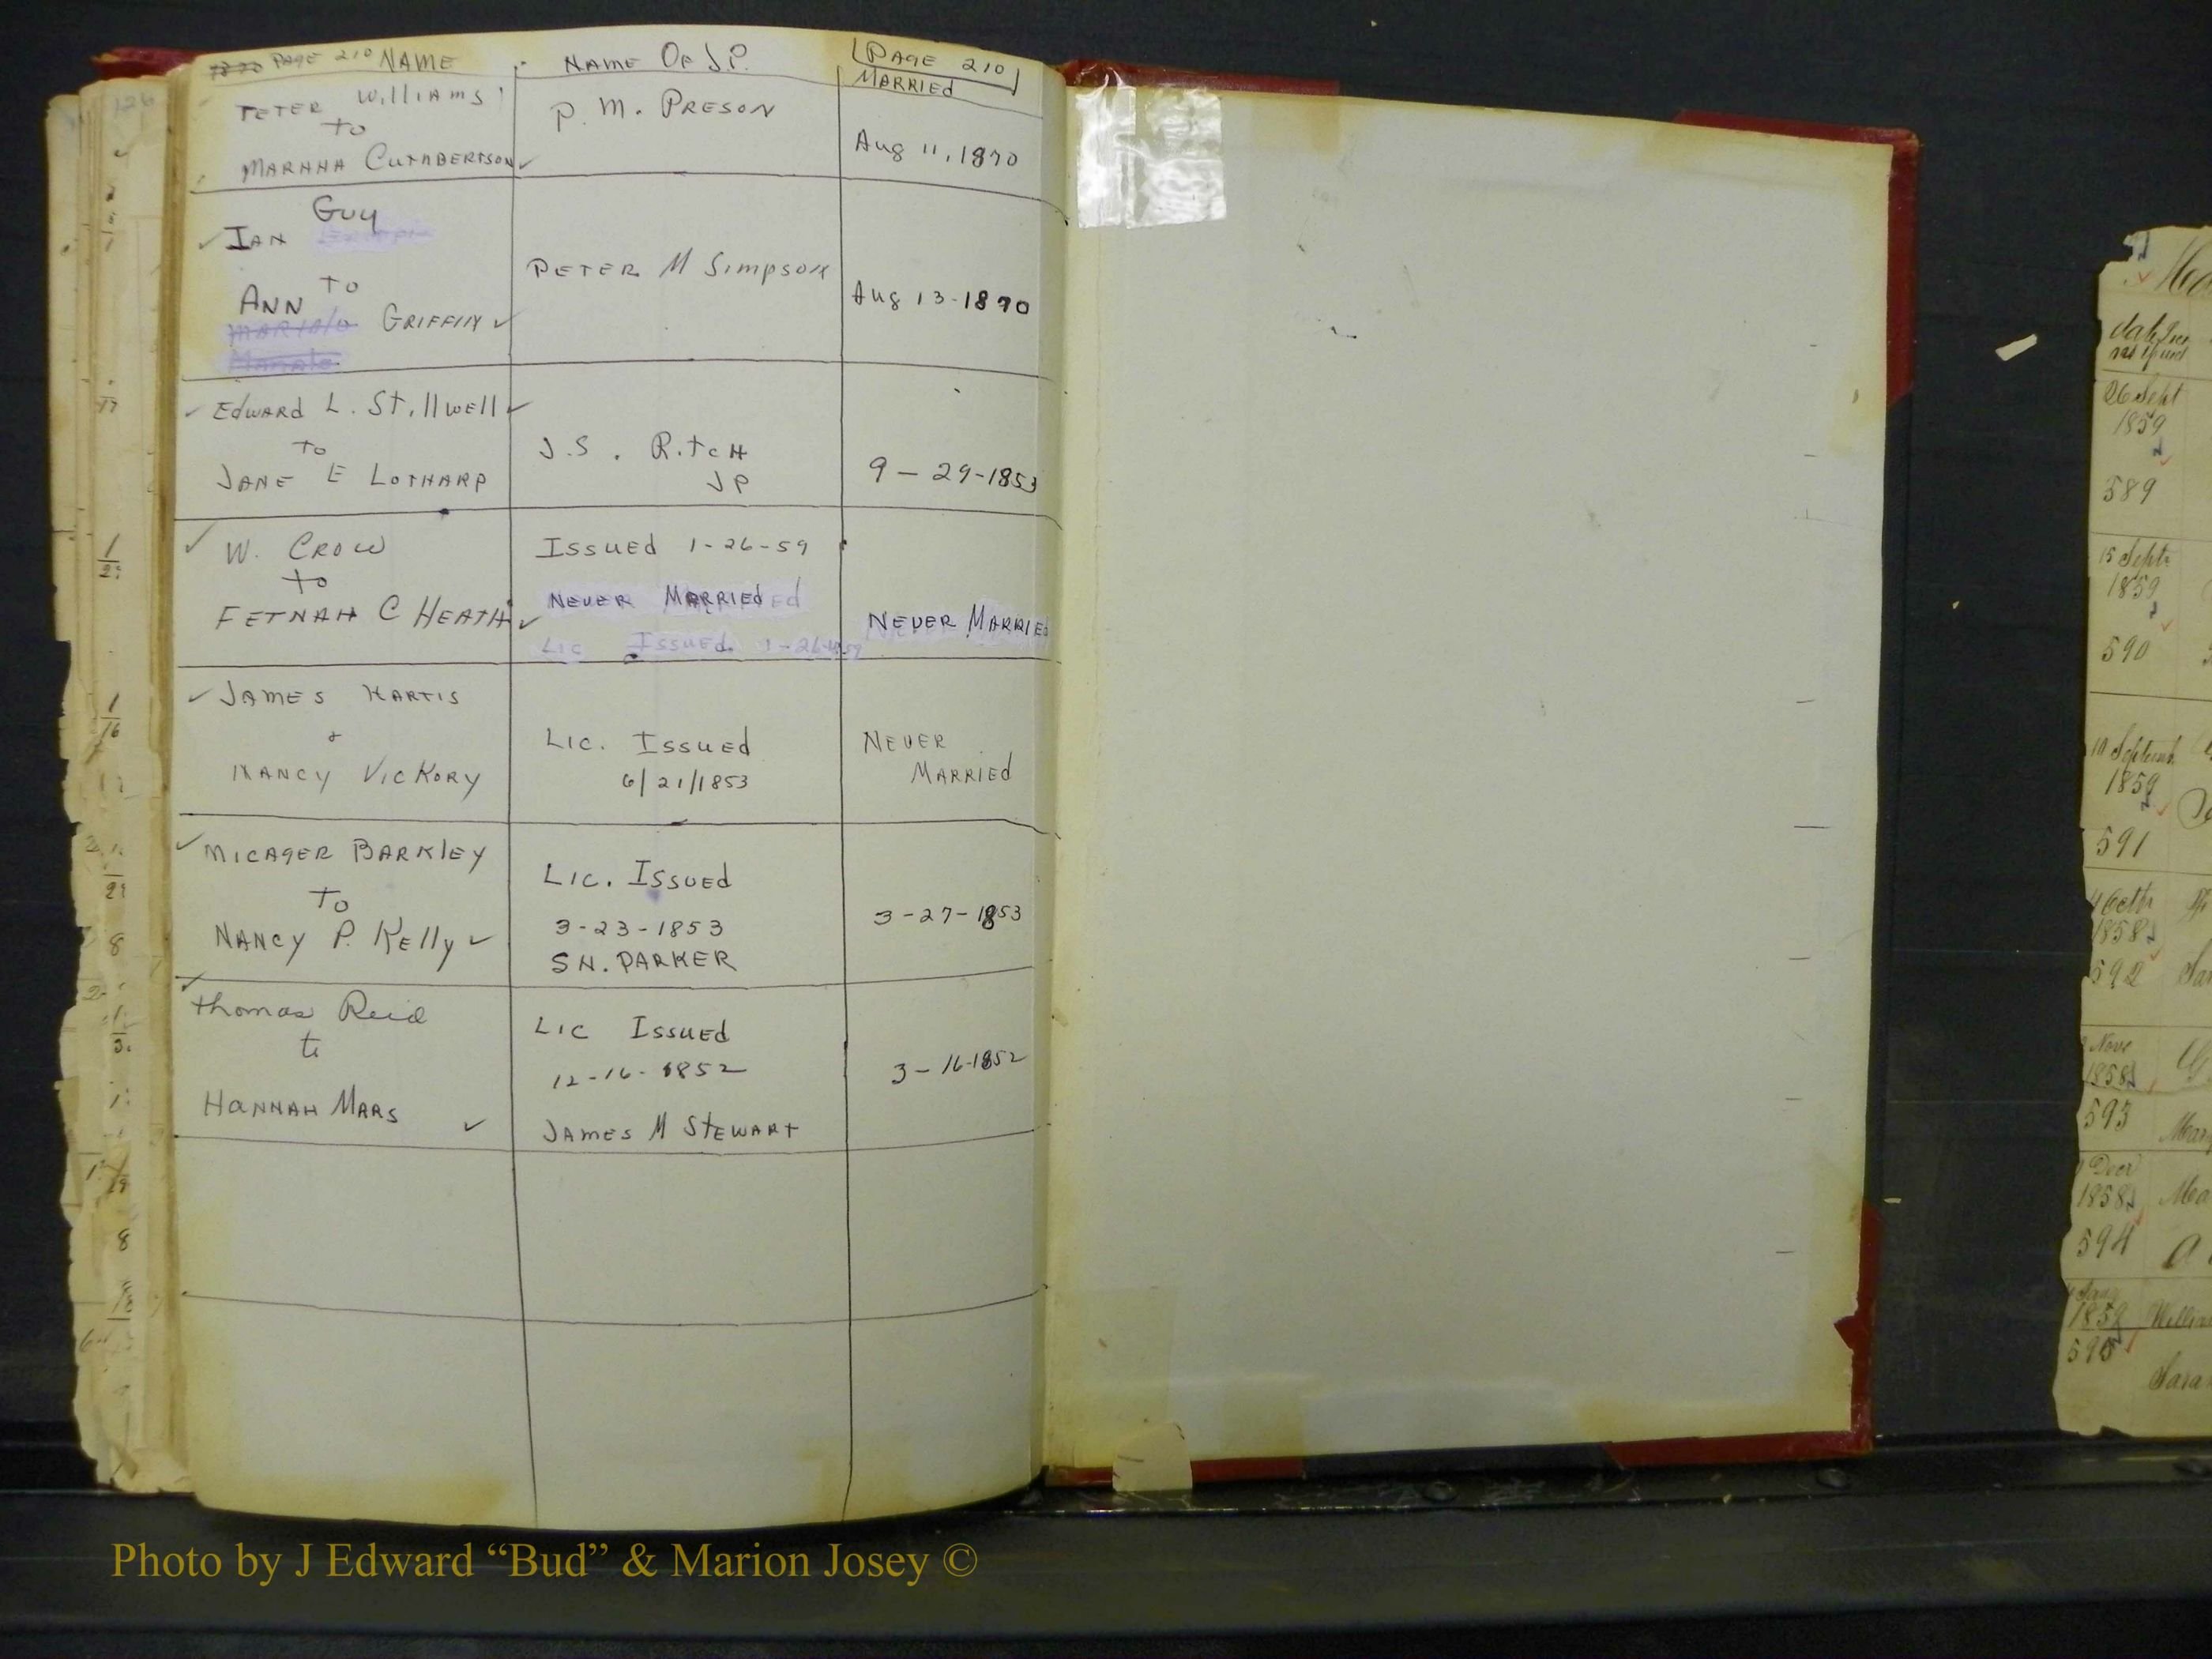 PAGE 210 NAME
NAME OF J.P.
PAGE 210
MARRIED
PETER WilliAms
to
MARHHA CUTHBERTSON
P. M. PRESON
Aug 11, 1870
Guy
IAN
To
ANN
GRIFFIN
PETER M SimpsoN
Aug 13-1870
Edward L. Stillwell
To
JANE E LOTHARP
J.S. RitcH
JP
9-29-1853
W. CROW
to
FETNAH C HEATH
ISSUED 1-26-59
NEVER MARRIEd
Lic ISSUEd 1-26-1859
NEVER MARRIEd
JAMES HARTIS
+
NANCY VicKORY
Lic. ISSUEd
6/21/1853
NEVER
MARRIEd
MICAGER BARKlEY
To
NANCY P. KElly
Lic. ISSUEd
3-23-1853
S N. PARKER
3-27-1853
Thomas Reid
to
HaNNAH MARS
Lic ISSUEd
12-16-1852
JAMES M STEWART
3-16-1852
26 Sept
1859
589
15 Sept
1859
590
1859
591
1858
592
Nove
1858
593
1858
594
Photo by J Edward “Bud” & Marion Josey ©